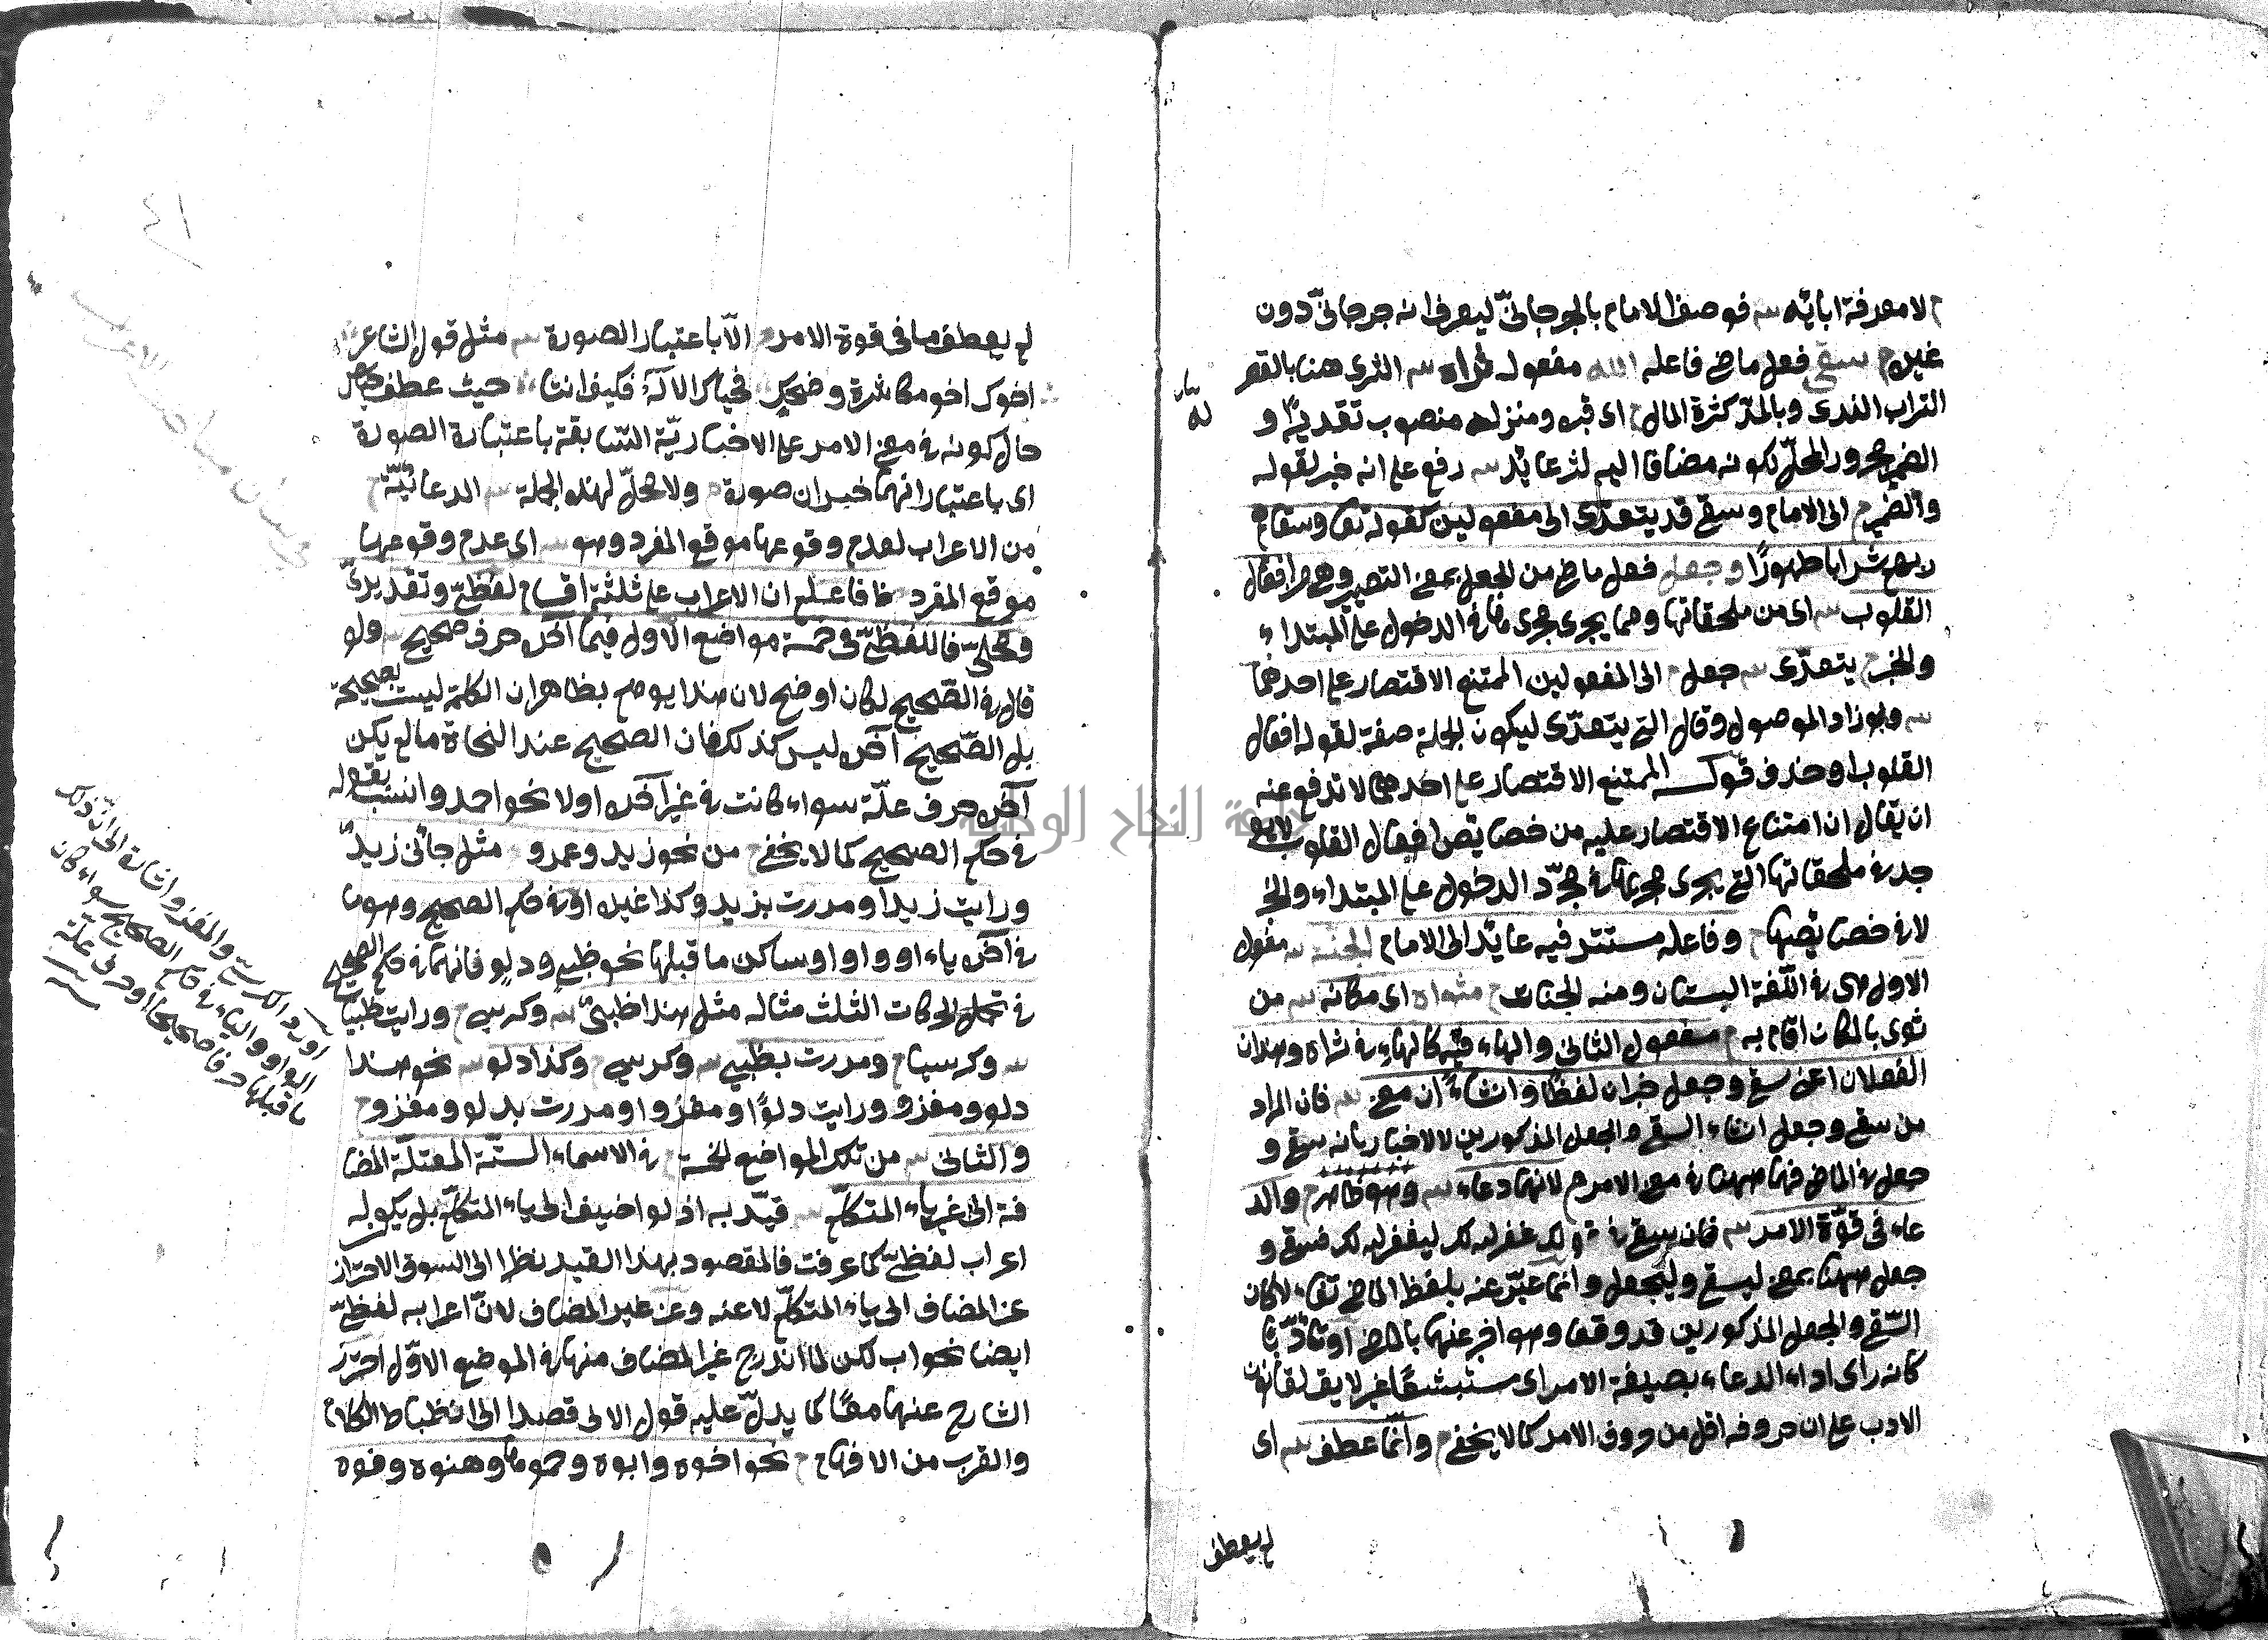 لا معرفة ابائه فوصف الامام بالجرجانيّ ليعرف انه جرجانيّ دون
غيره سقى فعل ماض فاعله الله مفعوله ثراه الثرى هنا بالقصر
التراب الندى وبالمدّ كثرة المال اى قبره ومنزله منصوب تقديرًا و
الضمير مجرور المحلّ لكونه مضافا اليه لثر عائد رفع على انه خبر لقوله
والضمير الى الامام وسقى قد يتعدّى الى مفعولين كقوله تعا وسقاهم
ربهم شرابا طهورًا وجعل فعل ماض من الجعل بمعنى التصيير وهى من افعال
القلوب اى من ملحقاتها ومما يجرى مجرى فى الدخول على المبتداء
والخبر يتعدّى جعل الى المفعولين الممتنع الاقتصار على احدهما
ولو زاد الموصول وقال التى يتعدّى ليكون الجملة صفة لقوله افعال
القلوب او حذف قوله الممتنع الاقتصار على احدهما لا تدفع عنه
ان يقال ان امتناع الاقتصار عليه من خصائص افعال القلوب لا يو
جد فى ملحقاتها التى يجرى مجراها فى مجرّد الدخول على المبتداء والخبر
لا فى خصائصها وفاعله مستتر فيه عائد الى الامام الجنة مفعول
الاول هى فى اللّغة البستان ومنه الجنات مثواه اى مكانه من
ثوى بالمكان اقام به مفعول الثانى والهاء فيه كالهاء فى ثراه وهذان
الفعلان اعنى سقى وجعل خبران لفظًا وانشاءان معنى فان المراد
من سقى وجعل انشاء السقى والجعل المذكورين لا الاخبار بانه سقى و
جعل فى الماضى فهما ههنا فى معنى الامر لانهما دعاء وهو ظاهر والد
عاء فى قوّة الامر فان سقى فى قولك غفر له لك ليغفر له لك فسقى و
جعل ههنا بمعنى ليسقى وليجعل وانما عبّر عنه بلفظ الماضى تفاءلا كان
السّقى والجعل المذكورين قد وقعا وهو اخبر عنهما بالماضى او تأدّبا
كانه راى اداء الدعاء بصيغة الامر اى مستبشعًا غير لايق لقانون
الادب على ان حروفه اقل من حروف الامر كما لا يخفى وانّما عطف اى
لم يعطف
لم يعطف ما فى قوة الامر الّا باعتبار الصورة مثل قول الشاعر
اخوك اخو مكاشرة وضحك فحياك الاله فكيف انتا حيث عطف حياك
حال كونه فى معنى الامر على الاخباريّة السّابقة باعتبارة الصورة
اى باعتبار انهما خبران صورة ولا محلّ لهذه الجملة الدعائيّة
من الاعراب لعدم وقوعها موقع المفرد وهو اى عدم وقوعها
موقع المفرد ظ فاعلم ان الاعراب على ثلثة اقسام لفظىّ وتقديرىّ
ومحلىّ فاللفظىّ فى خمسة مواضع الاول فيما آخره حرف صحيح ولو
قال فى الصّحيح لكان اوضح لان هذا يوهم بظاهر ان الكلمة ليست بصحيحة
بل الصّحيح آخره ليس كذلك فان الصحيح عند النحاة ما لم يكن
آخره حرف علّة سواء كانت فى غير آخره اولا نحو احد وانشب بقوله
فى حكم الصحيح كما لا يخفى من نحو زيد وعمرو مثل جائنى زيدٌ
ورايت زيدا ومررت بزيد وكذا غيره او فى حكم الصحيح وهو ما
فى آخره ياء او واو اوساكن ما قبلها نحو ظبى ودلو فانهما فى حكم الصحيح
فى تحمل الحركات الثلث مثاله مثل هذا ظبىٌ وكرسى ورايت ظبيا
وكرسيا ومررت بظبى وكرسى وكذا دلو نحو هذا
دلو ومغزو ورايت دلوًا ومغزوا ومررت بدلو ومغزو
والثانى من تلك المواضع الخمسة فى الاسماء الستّة المعتلّة المضا
فة الى غير ياء المتكلّم قيّد به اذ لو اضيف الى ياء المتكلّم بل يكون له
اعراب لفظىّ كما عرفت فالمقصود بهذا القيد نظرا الى السوق الاحتراز
عن المضاف الى ياء المتكلّم لا عنه وعن غير المضاف لانّ اعرابه لفظىّ
ايضا نحو اب لكن لما اندرج غير المضاف منها فى الموضع الاوّل احترز
الشارح عنهما معًا كما يدلّ عليه قول الاتى قصدا الى انظباط الكلام
والقرب من الافهام نحو اخوه وابوه وحموها وهنوه وفوه
اورد الكرسى والمغزو اشارة الى انّ ذلك
الواو والياء فى حكم الصحيح سواء كان
ما قبلها حرفا صحيحا او حرف علّة
٤١
جامعة النجاح الوطنية